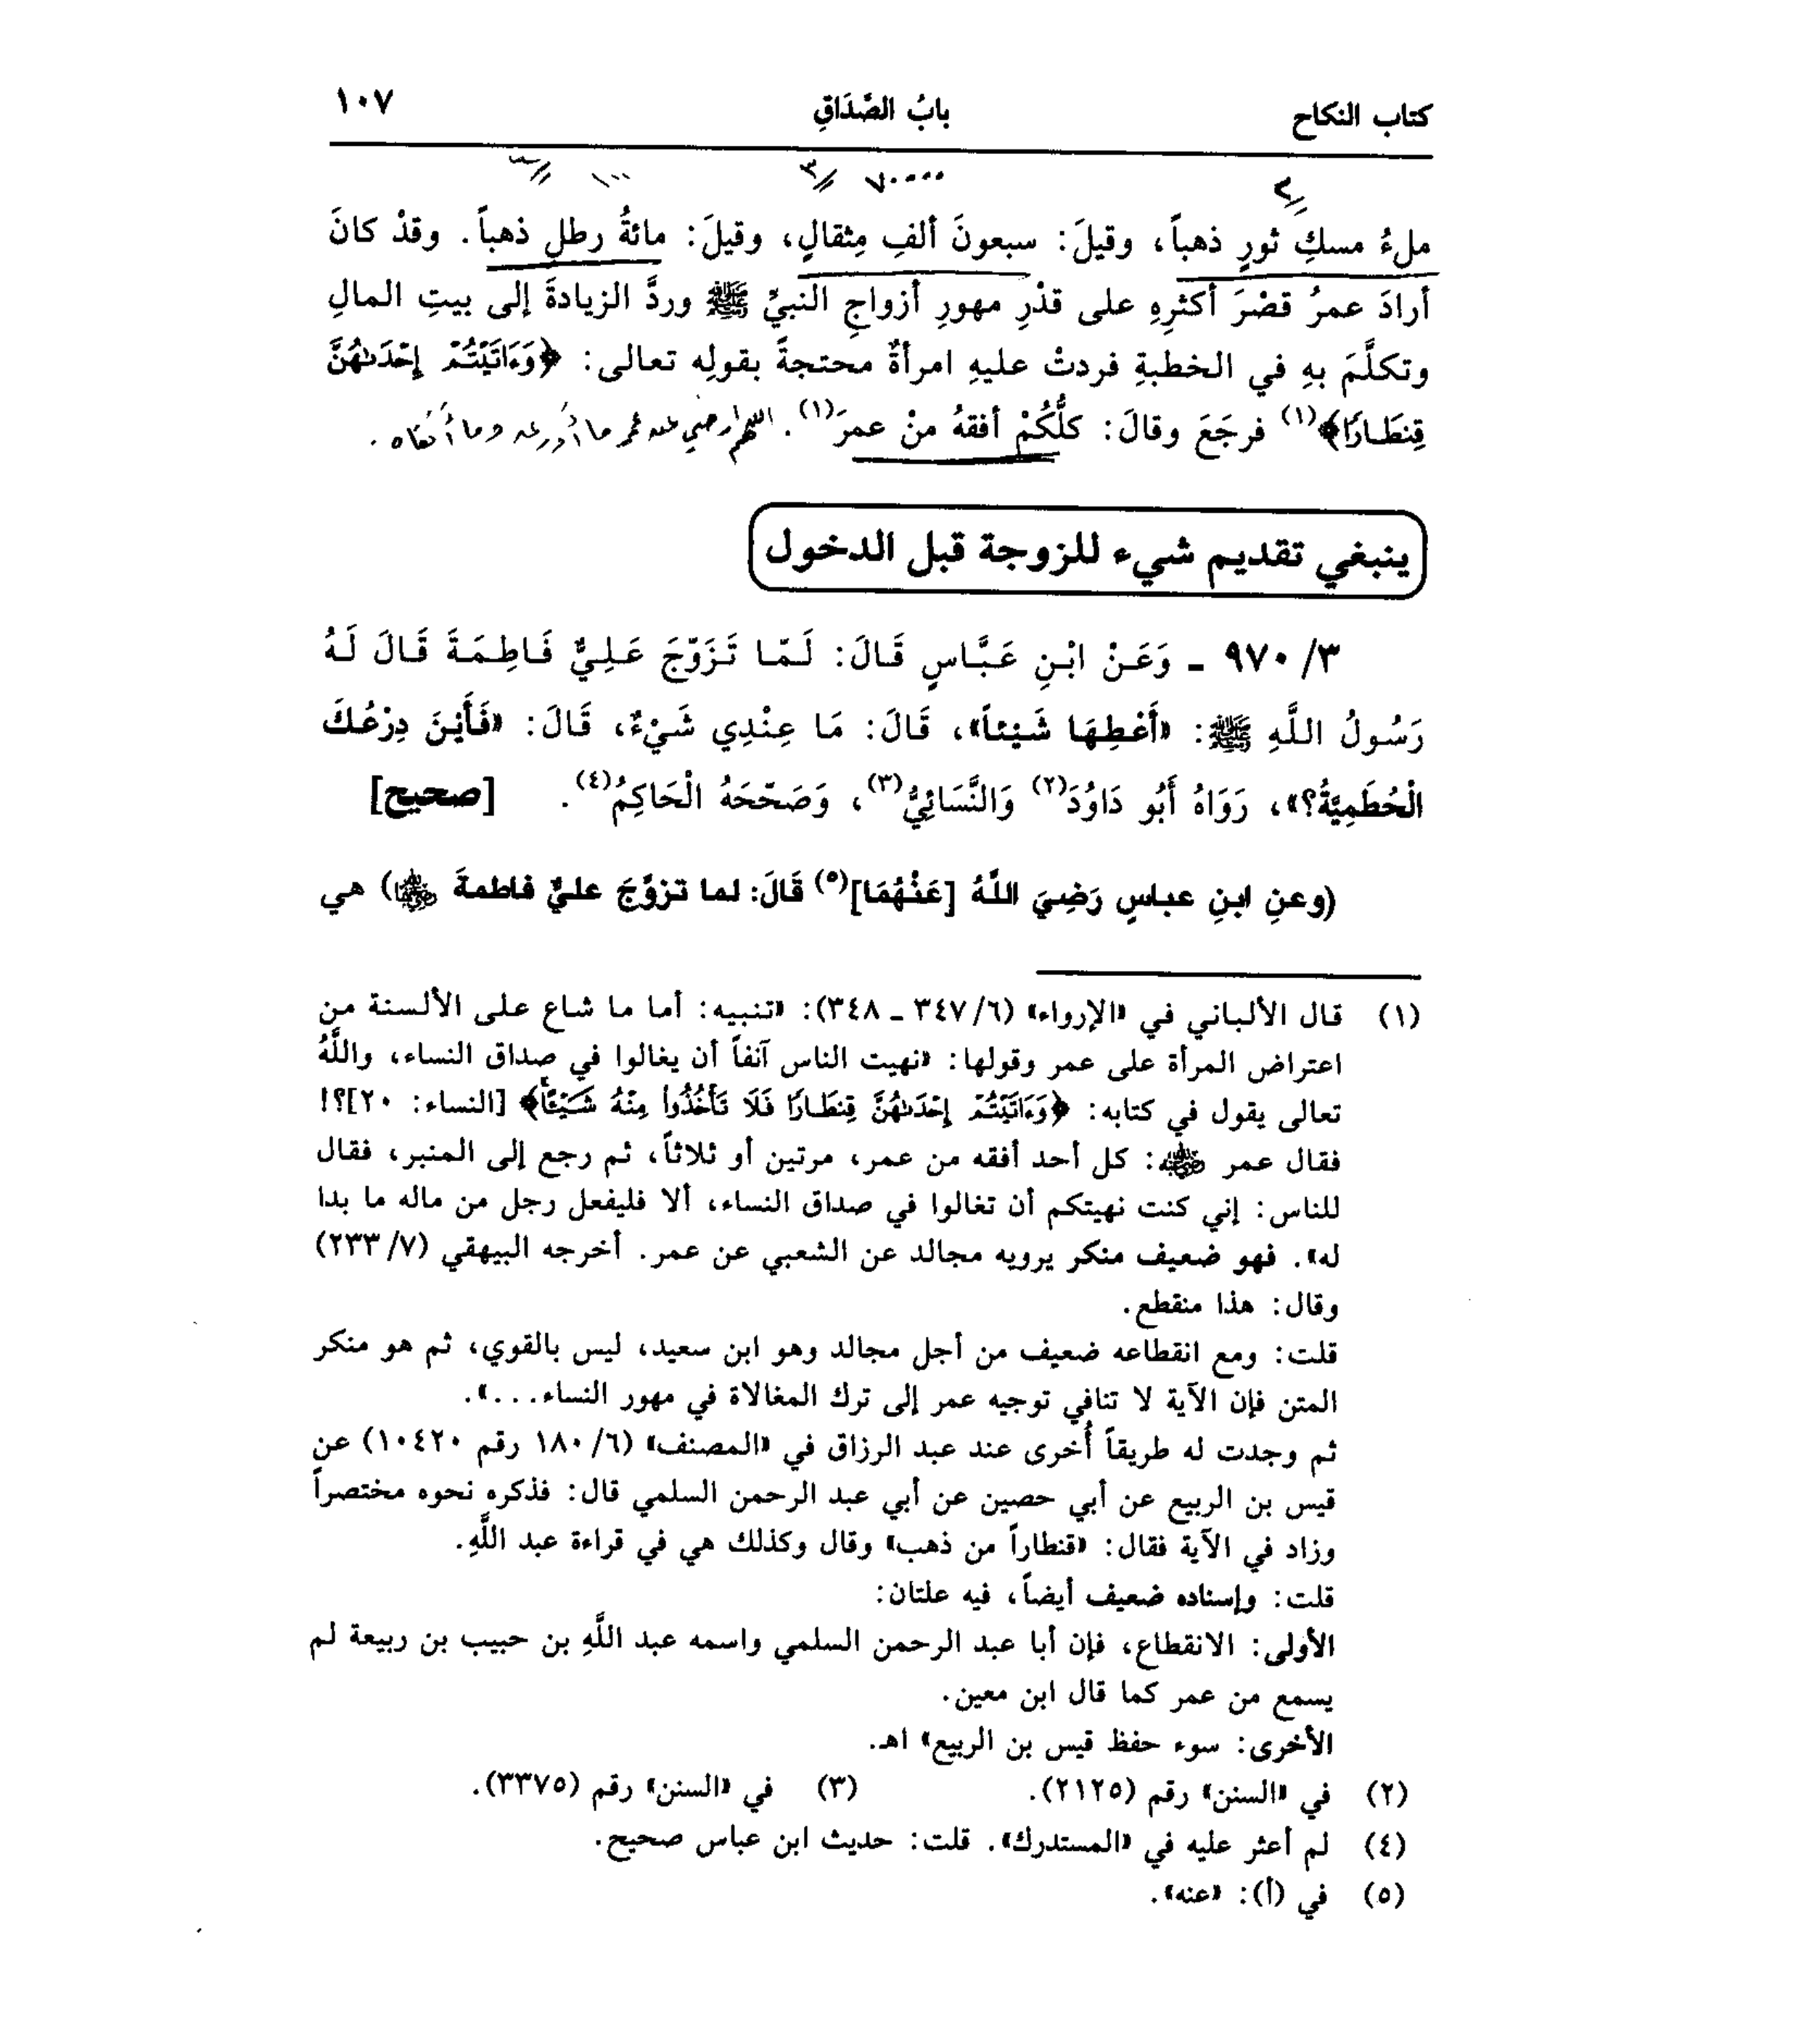 كتاب النكاح بابُ الصَّدَاقِ ١٠٧
٢ ٧٠٠٠٠ ٣ ١٠٠
ملءُ مسكِ ثورٍ ذهباً، وقيلَ: سبعونَ ألفِ مِثقالٍ، وقيلَ: مائةُ رطلٍ ذهباً. وقدْ كانَ
أرادَ عمرُ قصْرَ أكثرِهِ على قدْرِ مهورِ أزواجِ النبيِّ ﷺ وردَّ الزيادةَ إلى بيتِ المالِ
وتكلَّمَ بهِ في الخطبةِ فردتْ عليهِ امرأةٌ محتجةً بقولِه تعالى: ﴿وَءَاتَيْتُمْ إِحْدَىٰهُنَّ
قِنطَارًا﴾(١) فرجَعَ وقالَ: كلُّكُمْ أفقهُ منْ عمرَ(١). اللهم ارضى عنه عمر ما أورعه وما أتقاه.
ينبغي تقديم شيء للزوجة قبل الدخول
٣/ ٩٧٠ ـ وَعَنْ ابْنِ عَبَّاسٍ قَالَ: لَمّا تَزَوّجَ عَلِيٌّ فَاطِمَةَ قَالَ لَهُ
رَسُولُ اللَّهِ ﷺ: «أَعْطِهَا شَيْئاً»، قَالَ: مَا عِنْدِي شَيْءٌ، قَالَ: «فَأَيْنَ دِرْعُكَ
الْحُطَمِيَّةُ؟»، رَوَاهُ أَبُو دَاوُدَ(٢) وَالنَّسَائِيُّ(٣)، وَصَحّحَهُ الْحَاكِمُ(٤). [صحيح]
(وعنِ ابنِ عباسٍ رَضِيَ اللَّهُ [عَنْهُمَا](٥) قَالَ: لما تزوَّجَ عليٌّ فاطمةَ ﵂) هي
(١) قال الألباني في «الإرواء» (٦/ ٣٤٧ ـ ٣٤٨): «تنبيه: أما ما شاع على الألسنة من
اعتراض المرأة على عمر وقولها: «نهيت الناس آنفاً أن يغالوا في صداق النساء، واللَّهُ
تعالى يقول في كتابه: ﴿وَءَاتَيْتُمْ إِحْدَىٰهُنَّ قِنطَارًا فَلَا تَأْخُذُوا مِنْهُ شَيْئًا﴾ [النساء: ٢٠]؟!
فقال عمر ﵁: كل أحد أفقه من عمر، مرتين أو ثلاثاً، ثم رجع إلى المنبر، فقال
للناس: إني كنت نهيتكم أن تغالوا في صداق النساء، ألا فليفعل رجل من ماله ما بدا
له». فهو ضعيف منكر يرويه مجالد عن الشعبي عن عمر. أخرجه البيهقي (٧/ ٢٣٣)
وقال: هذا منقطع.
قلت: ومع انقطاعه ضعيف من أجل مجالد وهو ابن سعيد، ليس بالقوي، ثم هو منكر
المتن فإن الآية لا تنافي توجيه عمر إلى ترك المغالاة في مهور النساء...».
ثم وجدت له طريقاً أُخرى عند عبد الرزاق في «المصنف» (٦/ ١٨٠ رقم ١٠٤٢٠) عن
قيس بن الربيع عن أبي حصين عن أبي عبد الرحمن السلمي قال: فذكره نحوه مختصراً
وزاد في الآية فقال: «قنطاراً من ذهب» وقال وكذلك هي في قراءة عبد اللَّهِ.
قلت: وإسناده ضعيف أيضاً، فيه علتان:
الأولى: الانقطاع، فإن أبا عبد الرحمن السلمي واسمه عبد اللَّهِ بن حبيب بن ربيعة لم
يسمع من عمر كما قال ابن معين.
الأخرى: سوء حفظ قيس بن الربيع» اهـ.
(٢) في «السنن» رقم (٢١٢٥). (٣) في «السنن» رقم (٣٣٧٥).
(٤) لم أعثر عليه في «المستدرك». قلت: حديث ابن عباس صحيح.
(٥) في (أ): «عنه».